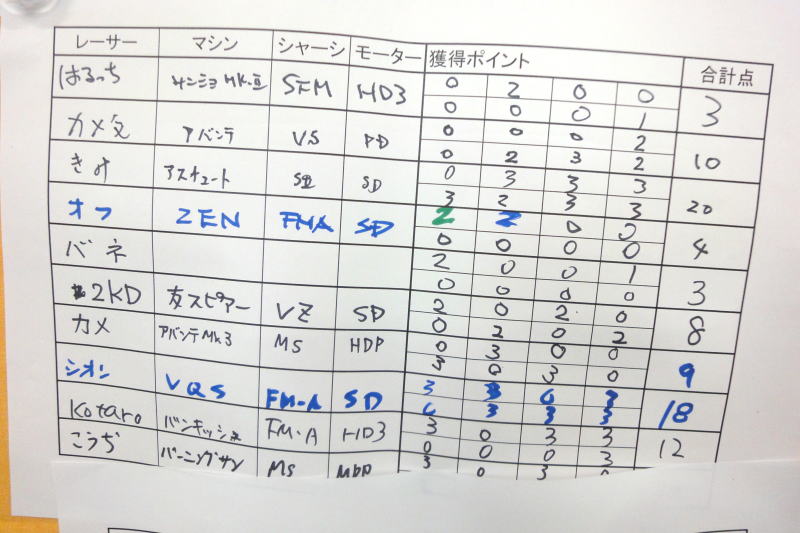 レーサー マシン シャーシ モーター 獲得ポイント 合計点
はるっち サンシヨ MK.Ⅱ SFM HD3 0 2 0 0 3
0 0 0 1
カメ父 アバンテ VS PD 0 0 0 2 10
0 2 3 2
きよ アスチュート SⅡ SD 0 3 3 3 20
3 2 3 3
オフ ZEN FMA SD 2 2 0 0 4
0 0 0 0
バネ 2 0 0 1 3
0 0 0 0
2KD 友スピアー VZ SD 2 0 2 0 8
0 2 0 2
カメ アバンテMk3 MS HDP 0 3 0 0 9
3 0 3 0
シオン VQS FM-A SD 3 3 0 3 18
0 3 3 3
Kotaro バンキッシュ FM-A HD3 3 0 3 3 12
0 0 0 3
こうぢ バーニングサン MS 3 0 3